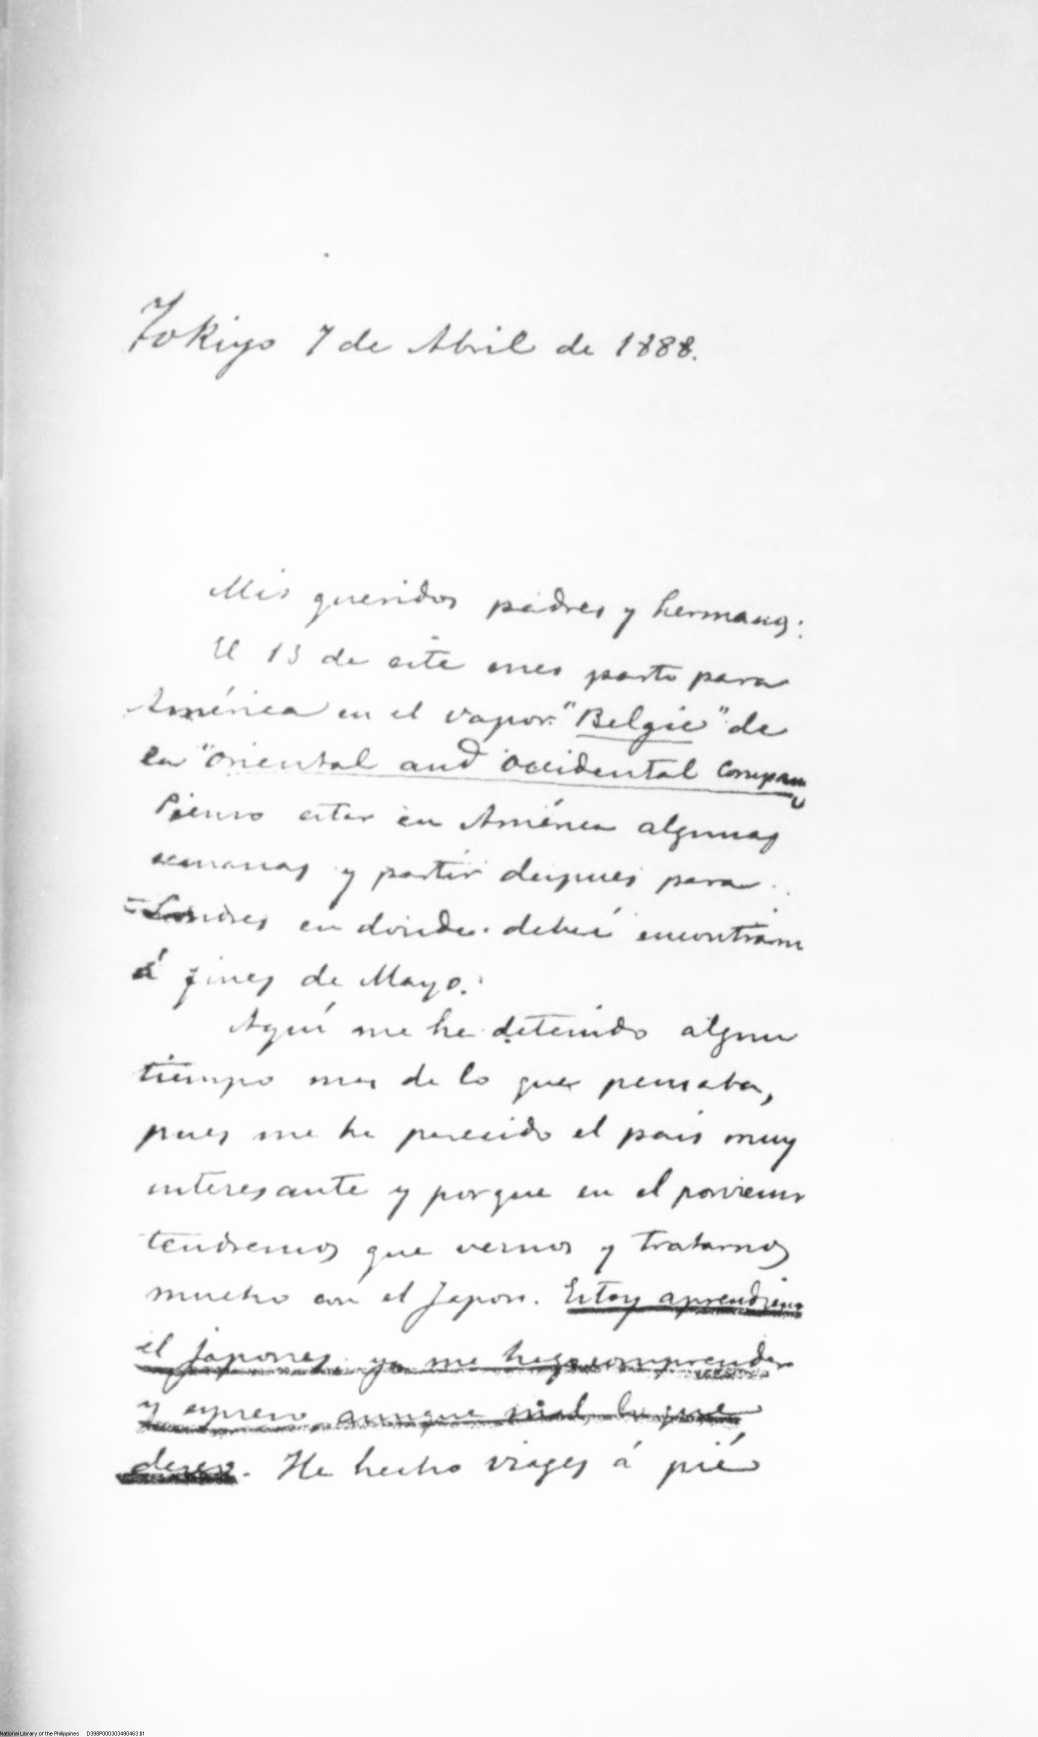 Tokiyo 7 de Abril de 1888.
Mis queridos padres y hermanos:
El 13 de este mes parto para
América en el vapor "Belgic" de
la "Oriental and Occidental Company
Pienso estar en América algunas
semanas y partir despues para
Londres en donde deberé encontrarme
á fines de Mayo.
Aquí me he detenido algun
tiempo mas de lo que pensaba,
pues me ha parecido el pais muy
interesante y porque en el porvenir
tendremos que vernos y tratarnos
mucho con el Japon. Estoy aprendiendo
el japones, ya me hago comprender
y espreso, aunque mal, lo que
deseo. He hecho viages á pié
National Library of the Philippines